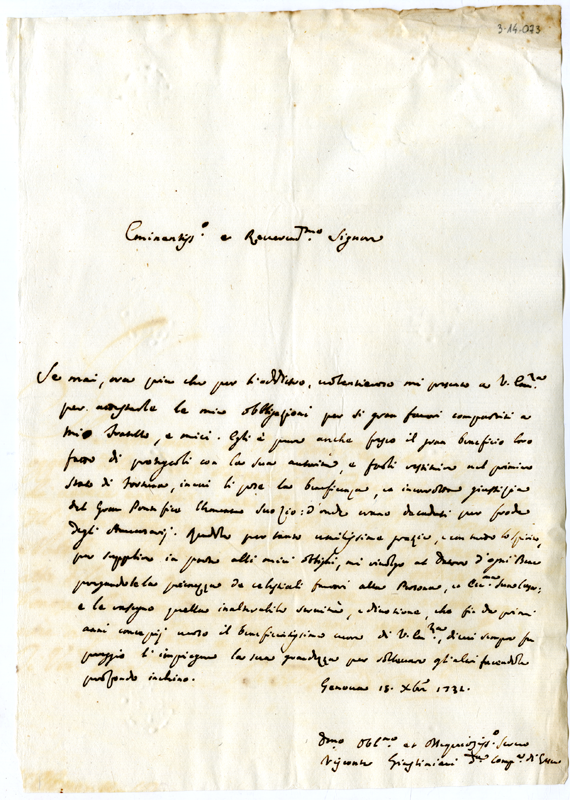 3-14-073
Eminentiss.o e Reverend.mo Signore
Se mai, ora più che per l'addietro, volentieroso mi presento a V. Em.za
per le mie obbligazioni per si gran favori compartiti a
mio Fratello, e miei. Egli è pure anche il gran beneficio loro
fatto di proteggerli con la sua autorità, e farli restituire nel primiero
Stato di Fortuna, in cui li pose la beneficenza, e incorrotta giustizia
del Gran Pontefice Clemente Suo Zio: d'onde erano decaduti per frode
degli Avversarij. per tanto umilissime grazie, e con tutto lo spirito,
per supplire in parte alli miei oblighi, mi rivolgo al Datore d'ogni Bene
pregandole la pienezza de celestiali favori alla Persona, e
e le quella inalterabile servitù, e divozione, che fin da primi
anni concepij verso il beneficentissimo cuore di V. Em.za, di cui sempre fu
pregio l'impiegare la sua grandezza per sollevare gli altri facendole
profondo inchino.
Genova 18. Xbre 1732.
Obl.mo et Ossequiosiss.o Servo
Giustiniani di Gesù